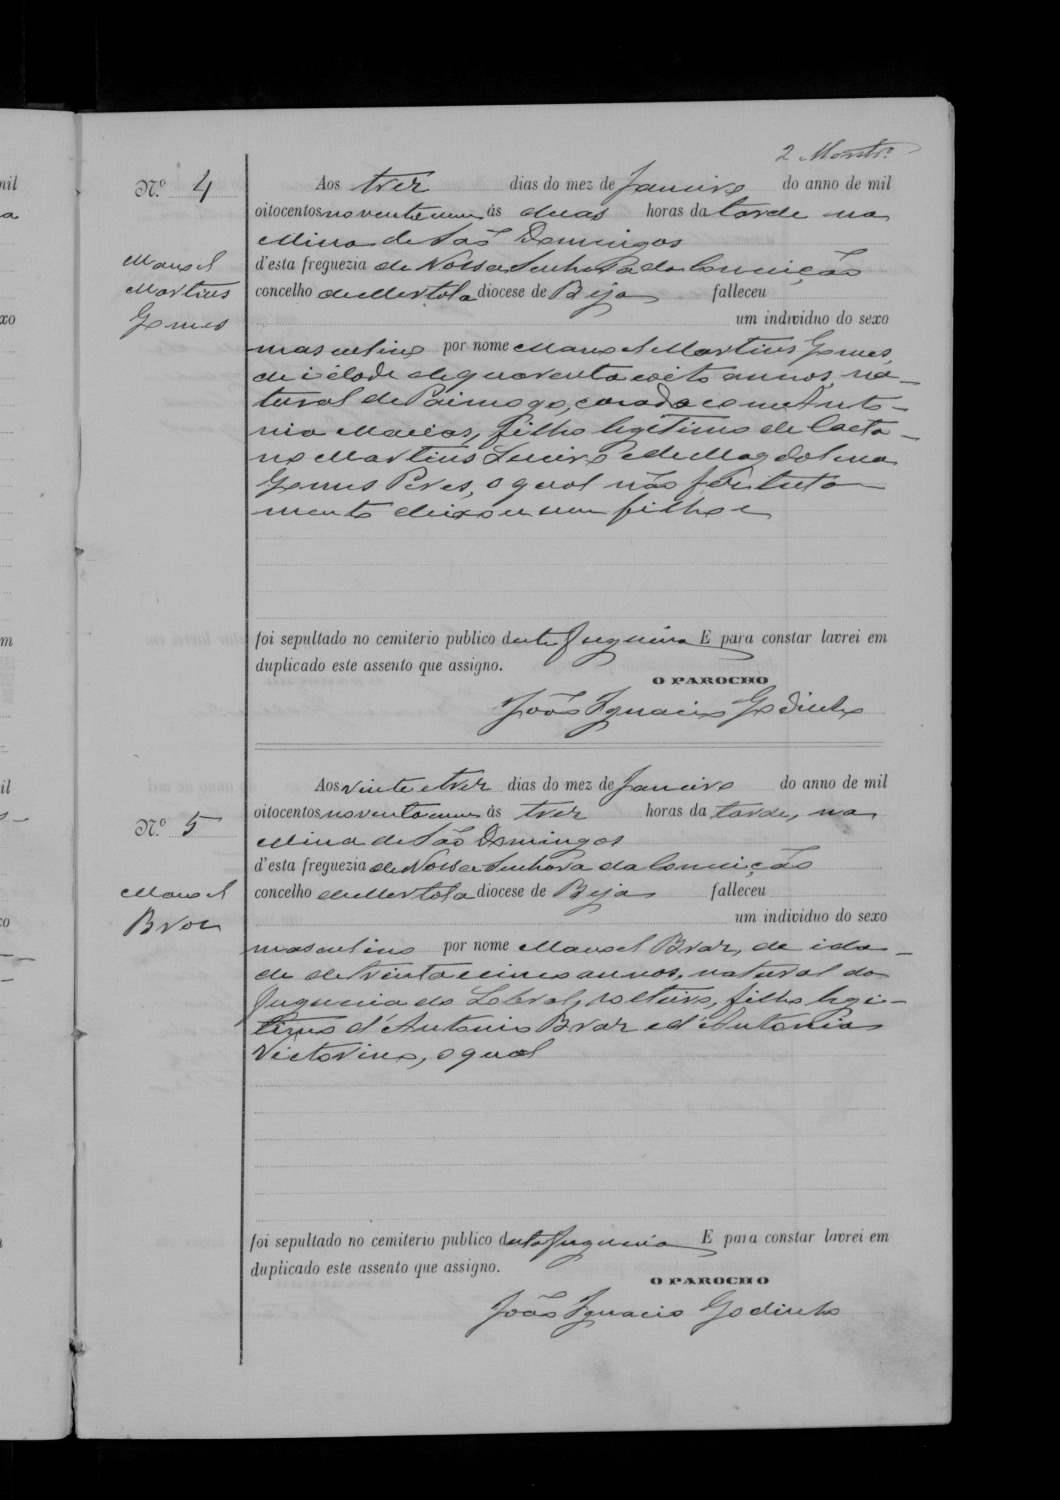 2
Nº 4
Manoel
Martins
Gomes
Aos trez dias do mez de Janeiro do anno de mil
oitocentos noventa e um ás duas horas da tarde na
Mina de São Domingos
d'esta freguezia de Nossa Senhora da Conceição
concelho de Mertola diocese de Beja falleceu
um individuo do sexo
masculino por nome Manoel Martins Gomes,
de idade de quarenta e oito annos, na-
tural de Paimogo, casado com Anto-
nia Macias, filho legitimo de Caeta-
no Martins e de Magdalena
Gomes Peres, o qual não fez testa
mento deixou um filho e
foi sepultado no cemiterio publico desta freguezia E para constar lavrei em
duplicado este assento que assigno.
O PAROCHO
João Ignacio Godinho
Nº 5
Manoel
Braz
Aos vinte e trez dias do mez de Janeiro do anno de mil
oitocentos noventa e um ás trez horas da tarde, na
Mina de São Domingos
d'esta freguezia de Nossa Senhora da Conceição
concelho de Mertola diocese de Beja falleceu
um individuo do sexo
masculino por nome Manoel Braz, de ida-
de de trinta e cinco annos, natural da
freguezia do solteiro, filho legi-
timo d'Antonio Braz e d'Antonia
Victorina, o qual
foi sepultado no cemiterio publico desta freguezia E para constar lavrei em
duplicado este assento que assigno.
O PAROCHO
João Ignacio Godinho